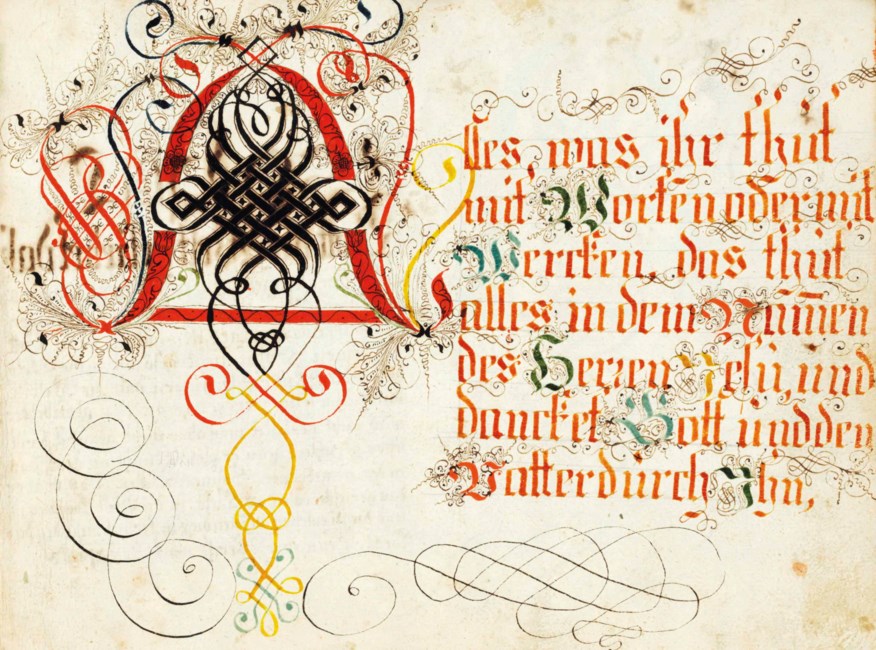 Alles, was ihr thut
mit Worten oder mit
Wercken, das thut
alles in dem Nam̄en
des Herren Jesu, und
dancket Gott und den
Vatter durch Ihn,